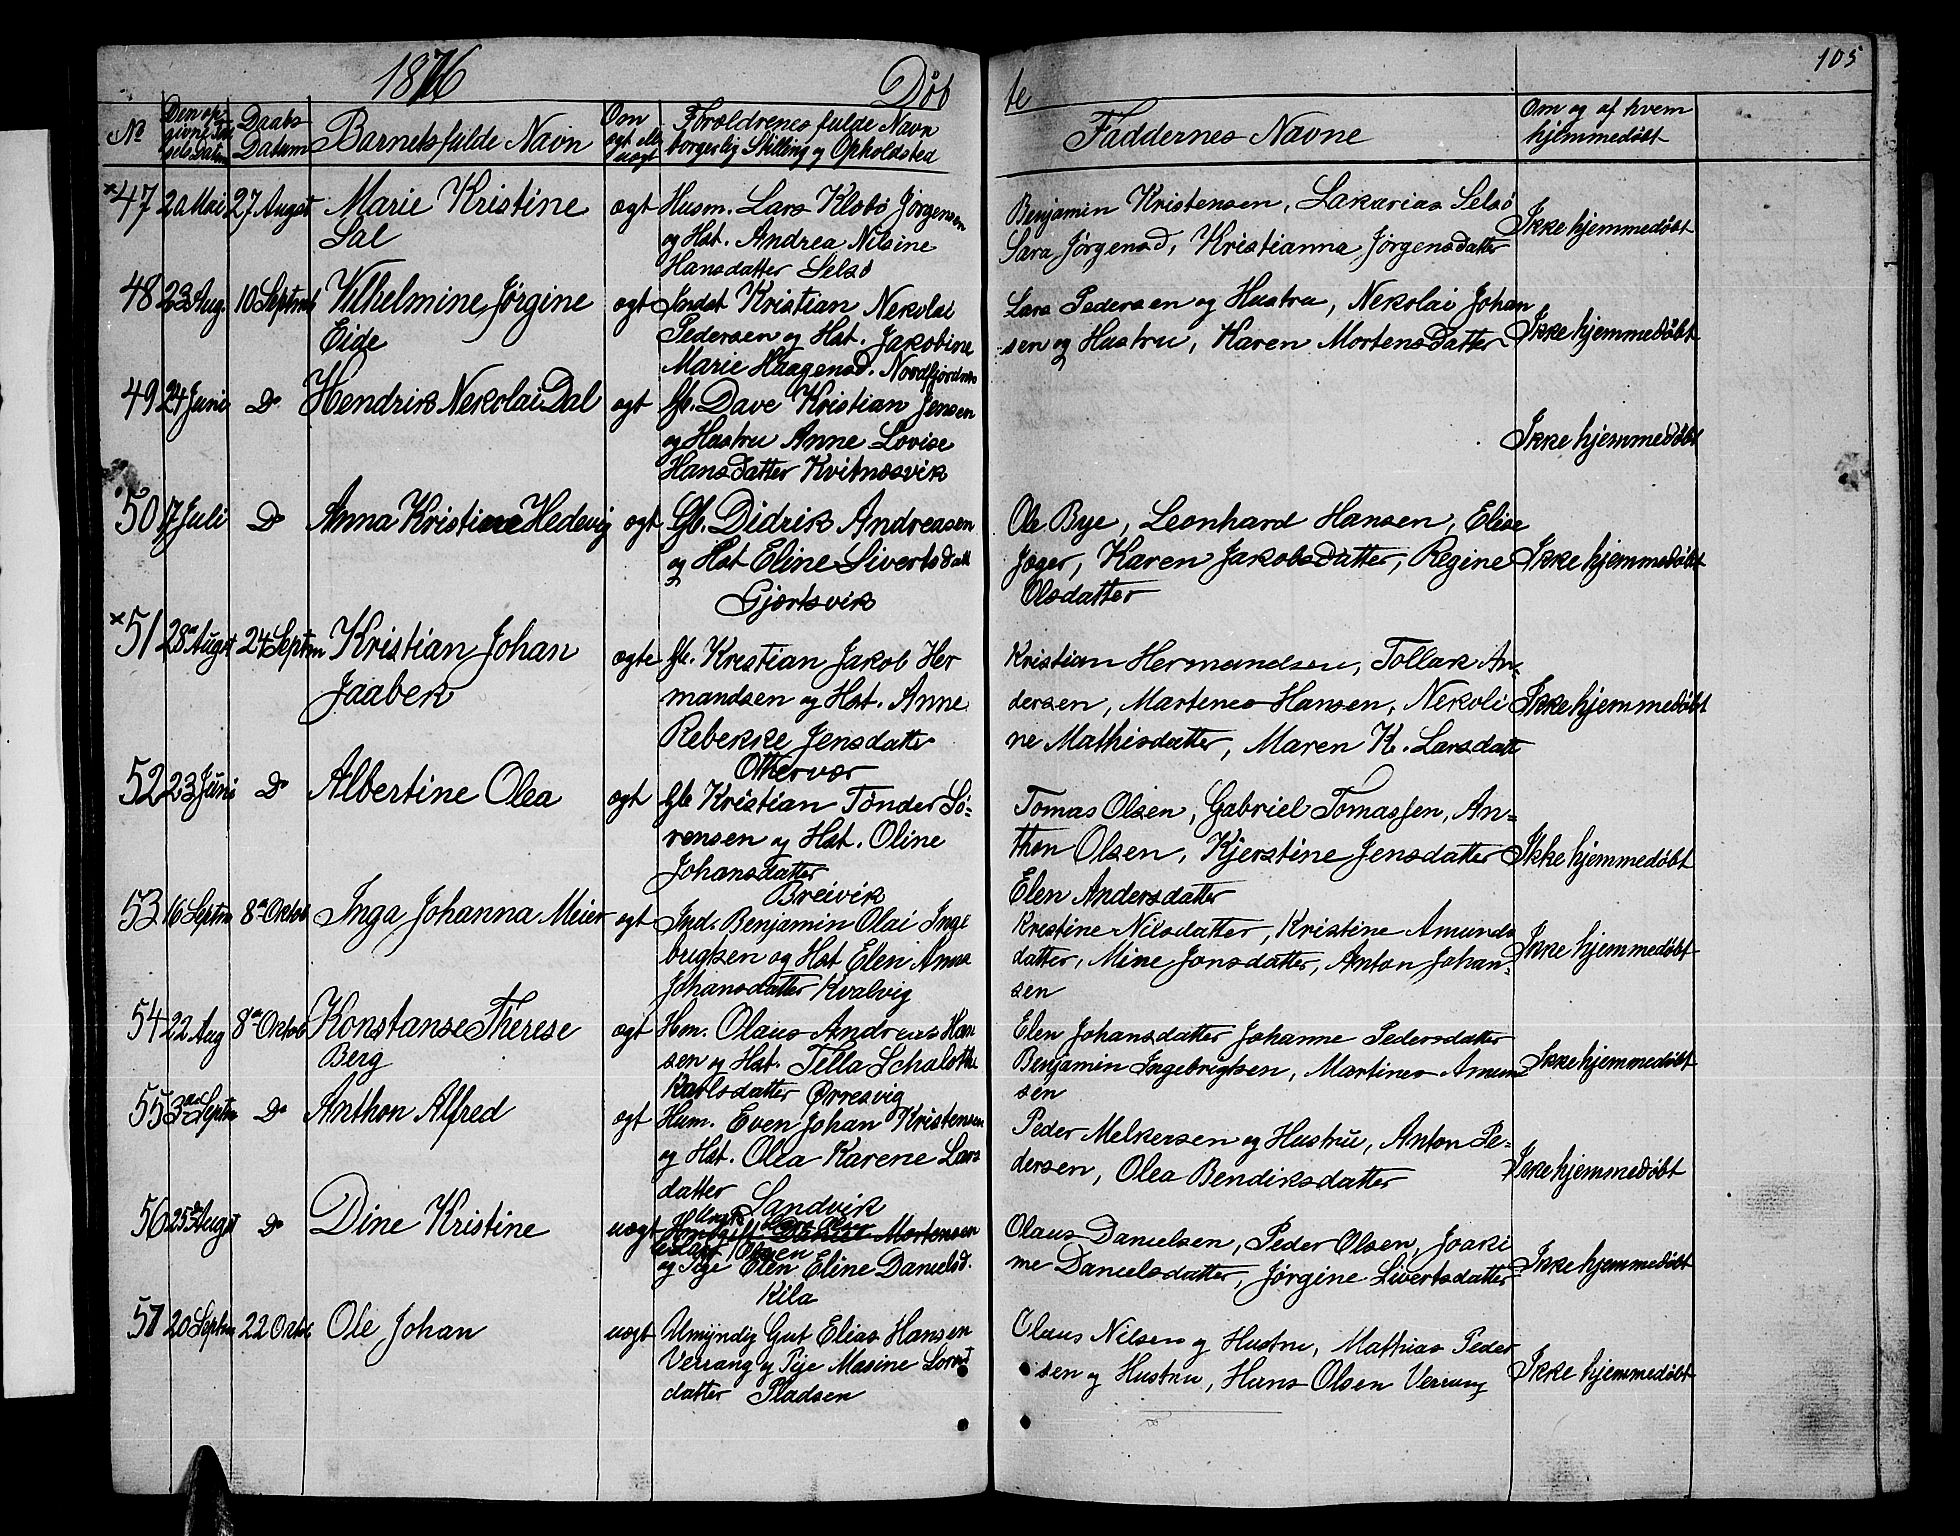 1876 Døb
te 105
No Den opgivne Fødselsdatum Daabs Datum Barnets fulde Navn Om ægt eller uægt Forældrenes fulde Navn borgerlig Stilling og Opholdsted
Faddernes Navne Om og af hvem hjemmedøbt
×47 20 Mai 27 Augst Marie Kristine ægt Husm. Lars Jørgensen
Dal og Hst. Andrea Nilsine
Hansdatter Selsø
Benjamin Kristensen, Sakarias Selsø Ikke hjemmedøbt
Sara Jørgensd, Kristianna Jørgensdatter
48 23 Aug. 10 Septmb Vilhelmine Jørgine ægt Indst Kristian Nekolai
Eide Pedersen og Hst. Jakobine
Marie Haagensd. Nordfjordnes
Lars Pedersen og Hustru, Nekolai Johan
sen og Hustru, Karen Mortensdatter Ikke hjemmedøbt
49 24 Juni Do Hendrik Nekolai Dal ægt Gb. Dave Kristian Jensen
og Hustru Anne Lovise
Hansdatter Kvitnæsvik
Ikke hjemmedøbt
50 17 Juli Do Anna Kristine Hedevig ægt Gb. Didrik Andreasen
og Hst Eline Sivertsdatt
Gjærtsvik
Ole Bye, Leonhard Hansen, Elise
Jæger, Karen Jakobsdatter, Regine Ikke hjemmedøbt
Olsdatter
×51 28 Augst 24 Septm Kristian Johan ægte Gb. Kristian Jakob Her
Jaabek mandsen og Hst. Anne
Rebekke Jensdatter
Othervær
Kristian Hermandsen, Tollak An
dersen, Martenes Hansen, Nekoli Ikke hjemmedøbt
ne Mathisdatter, Maren K. Larsdatt
52 23 Juni Do Albertine Olea ægt Gb Kristian Tønder Sø-
rensen og Hst. Oline
Johansdatter
Breivik
Tomas Olsen, Gabriel Tomassen, An=
thon Olsen, Kjerstine Jensdatter Ikke hjemmedøbt
Elen Andersdatter
53 16 Septm 8de Oktob Inga Johanna Meier ægt Ind. Benjamin Olai Inge
brigtsen og Hst Elen Anna
Johansdatter Kvalvig
Kristine Nilsdatter, Kristine Amunds
datter, Mine Jonsdatter, Anton Johan= Ikke hjemmedøbt
sen
54 22 Aug 8de Oktob Konstanse Therese ægt Hm. Olaus Andreas Han
Berg sen og Hst. Tella Schalotte
Karlsdatter Ørresvig
Elen Johansdatter Johanne Pedersdatter
Benjamin Ingebrigtsen, Martines Amund Ikke hjemmedøbt
sen
55 3de Septm Do Anthon Alfred ægt Husm. Even Johan Kristensen
og Hst. Olea Karene Lars
datter Sandvik
Peder Melkersen og Hustru, Anton Pe=
dersen, Olea Bendiksdatter Ikke hjemmedøbt
56 25 Augst Do Dine Kristine uægt Mortensen
Olsen
og Pige Elen Eline Danielsd.
Kila
Olaus Danielsen, Peder Olsen, Joaki
me Danielsdatter, Jørgine Sivertsdatter Ikke hjemmedøbt
57 20 Septm 22 Oktob Ole Johan uægt Umyndig Gut Elias Hansen
Verrang og Pige Masine Lornts
datter Pladsen
Olaus Nilsen og Hustru, Mathias Peder
sen og Hustru, Hans Olsen Verrang Ikke hjemmedøbt